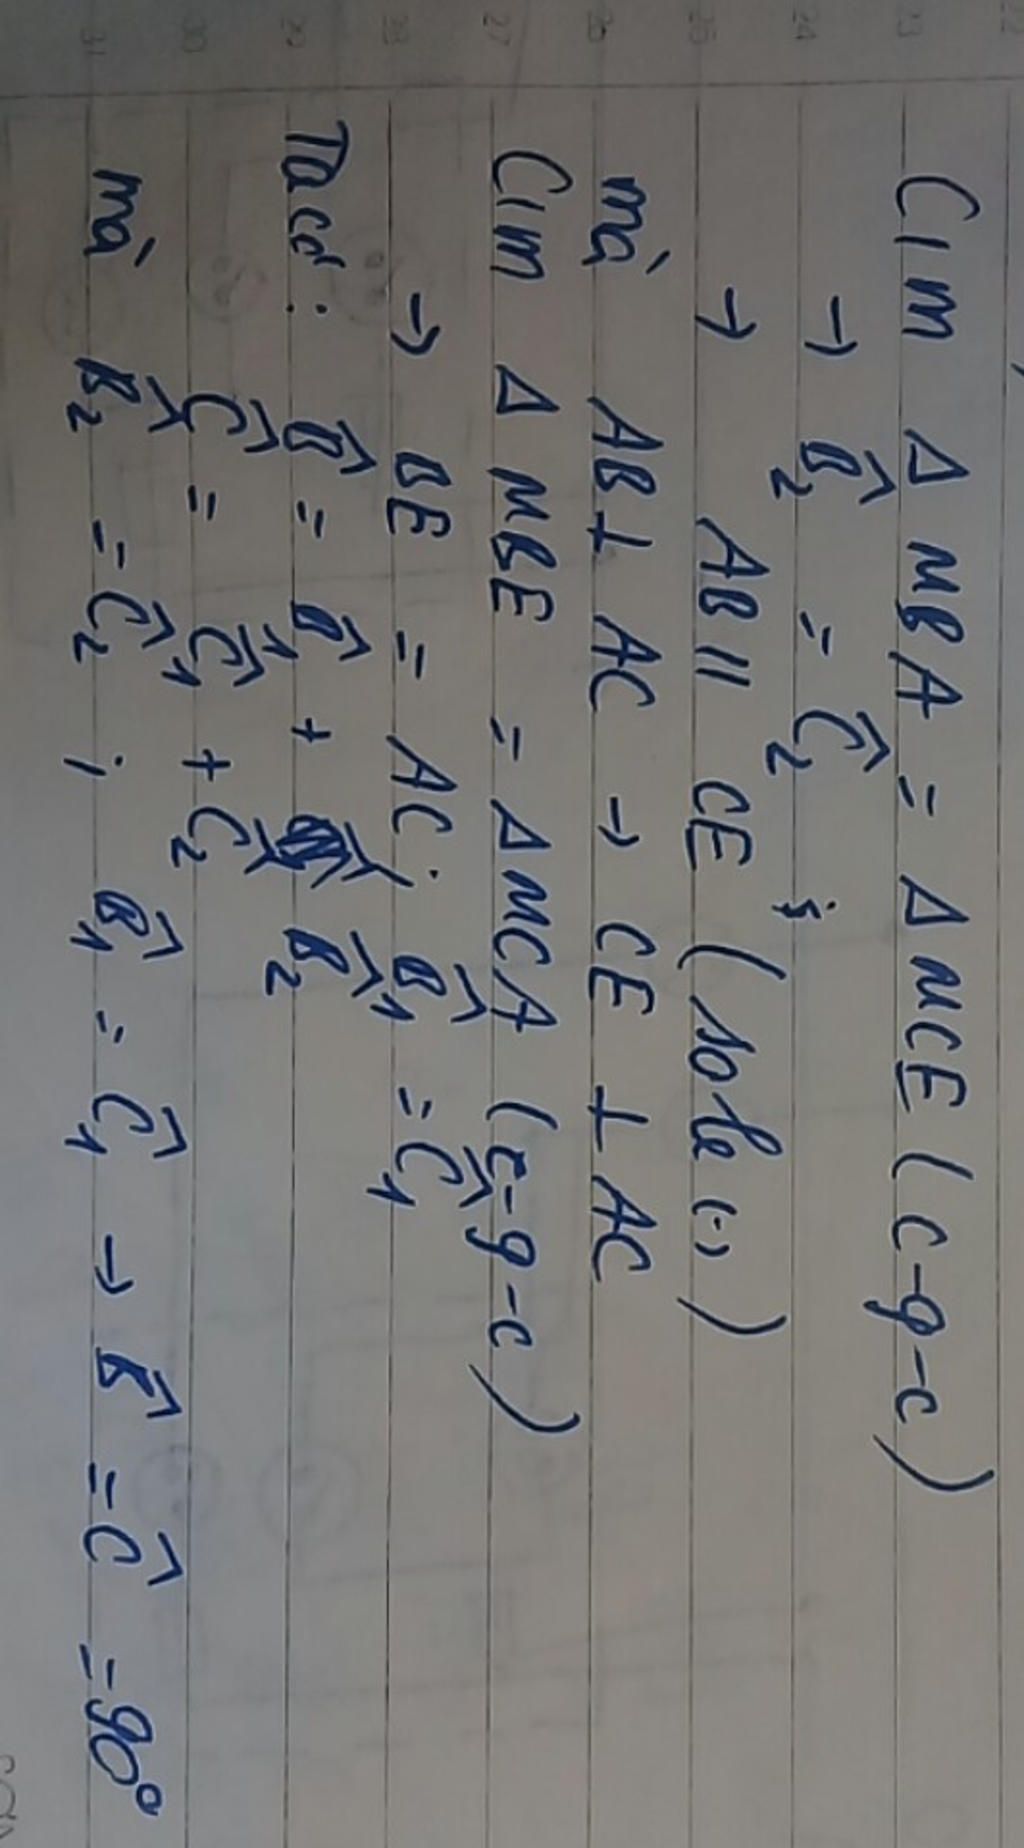 C/m Δ MBA = Δ MCE (c-g-c)
→ B̂₂ = Ĉ₂ ;
→ AB || CE (sole (·))
mà AB ⊥ AC → CE ⊥ AC
C/m Δ MBE = Δ MCA (c-g-c)
→ BE = AC ; B̂₁ = Ĉ₁
Ta có : B̂ = B̂₁ + B̂₂
Ĉ = Ĉ₁ + Ĉ₂
mà B̂₂ = Ĉ₂ ; B̂₁ = Ĉ₁ → B̂ = Ĉ = 90°